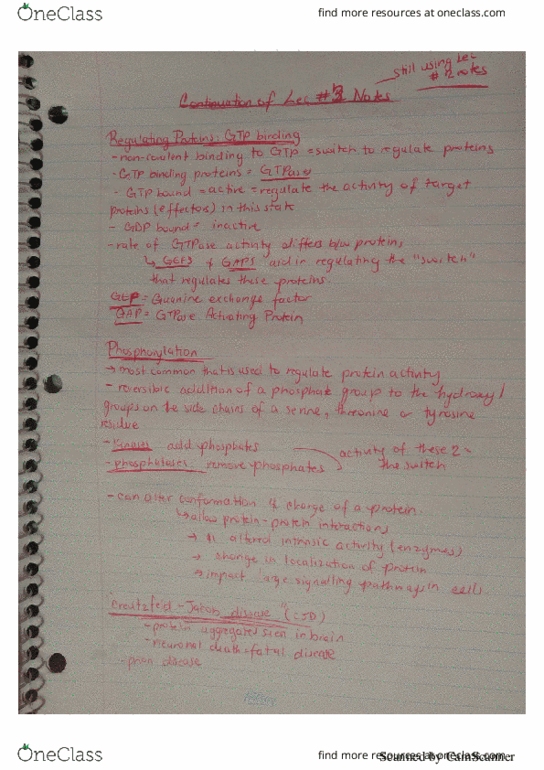 OneClass
find more resources at oneclass.com
still using Lec
# 2 notes
Continuation of Lec #3 Notes
Regulating Proteins: GTP binding
- non-covalent binding to GTP = switch to regulate proteins
- GTP binding proteins = GTPase
- GTP bound = active = regulate the activity of target
proteins (effectors) in this state
- GDP bound = inactive
- rate of GTPase activity differs b/w proteins
↳ GEFS & GAPS aid in regulating the "switch"
that regulates these proteins.
GEF = Guanine exchange factor
GAP = GTPase Activating Protein
Phosphorylation
→ most common that is used to regulate protein activity
- reversible addition of a phosphate group to the hydroxyl
groups on the side chains of a serine, threonine or tyrosine
residue
- kinases add phosphates
- phosphatases: remove phosphates
activity of these 2 =
the switch
- can alter conformation & charge of a protein
↳ allow protein-protein interactions
→ altered intrinsic activity (enzymes)
→ change in localization of protein
→ impact large signalling pathways in cells.
"Creutzfeld-Jakob disease" (CJD)
- protein aggregates seen in brain
- neuronal death = fatal disease
- prion disease
OneClass
find more resources at oneclass.com
Scanned by CamScanner